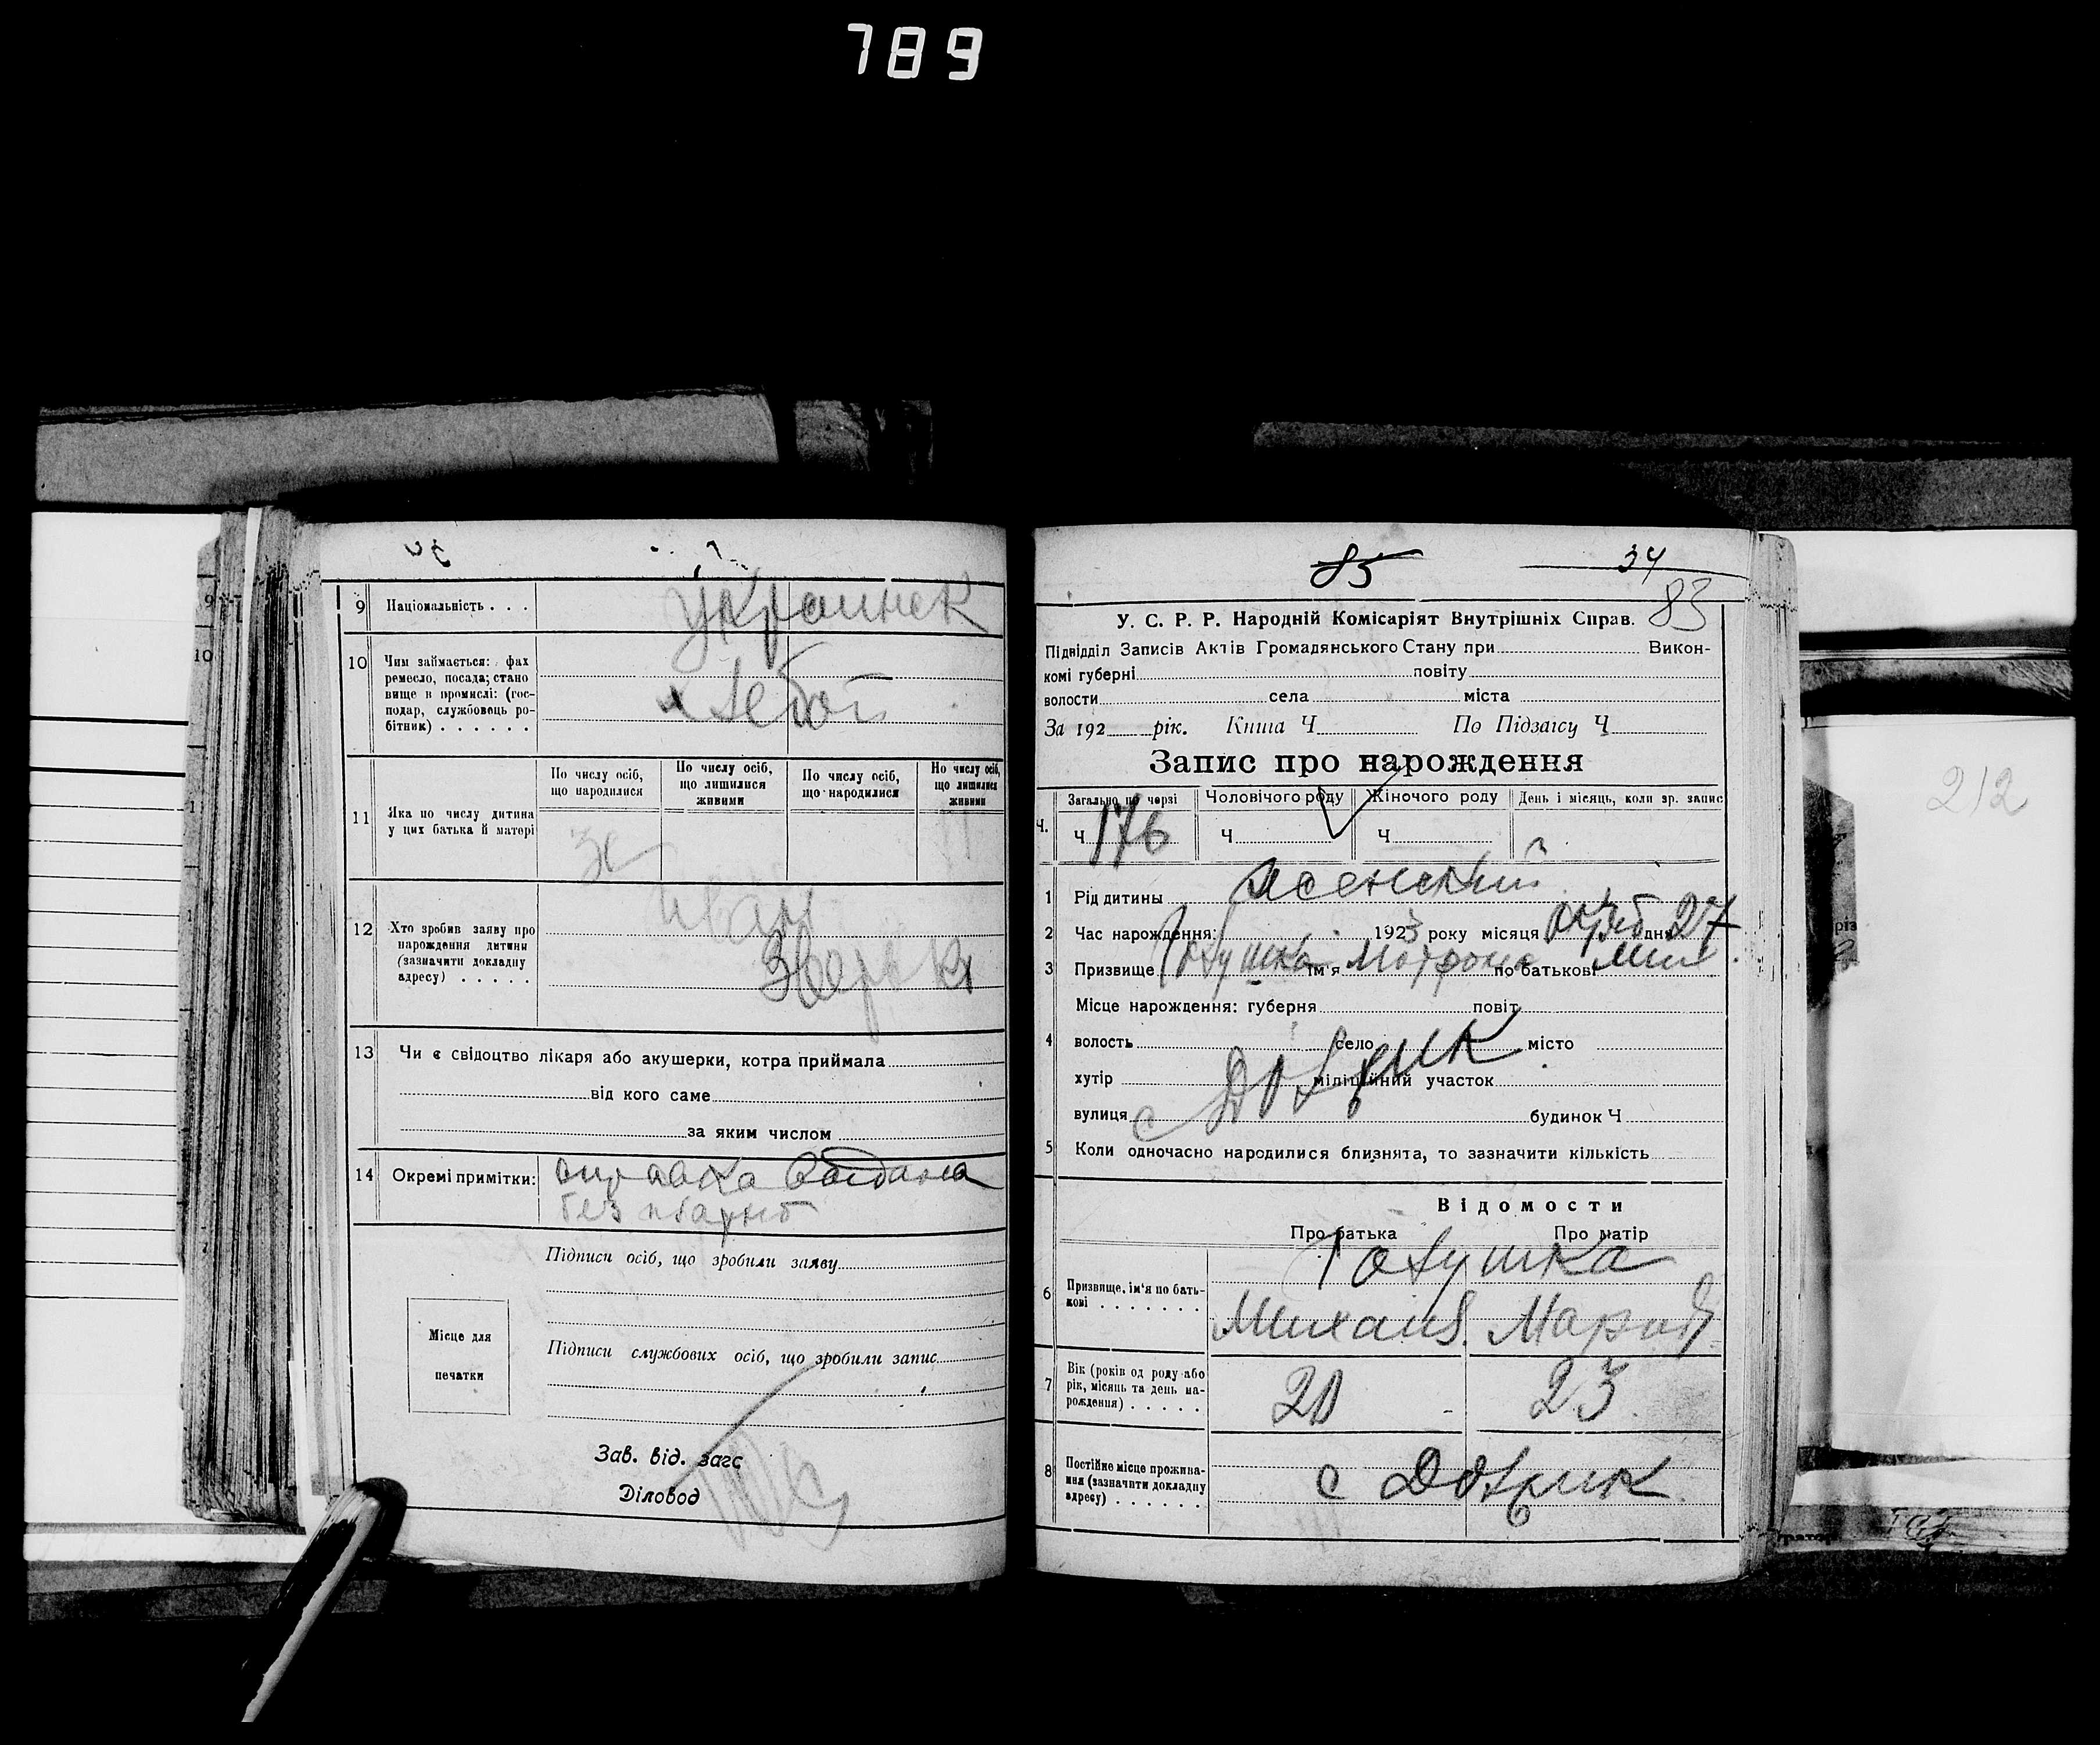 789
9 Національність . . .
украинек
10 Чим займається: фах
ремесло, посада; стано
вище в промислі: (гос-
подар, службовець ро-
бітник) . . . . . .
хлебоп
11 Яка по числу дитина
у цих батька й матері
По числу осіб,
що народилися
По числу осіб,
що лишилися
живими
По числу осіб,
що народилися
Но числу осіб,
що лишилися
живими
12 Хто зробив заяву про
нарождення дитини
(зазначити докладну
адресу) . . . . .
Иван
13 Чи є свідоцтво лікаря або акушерки, котра приймала
від кого саме
за яким числом
14 Окремі примітки:
без
Підписи осіб, що зробили заяву
Місце для
печатки
Підписи службових осіб, що зробили запис
Зав. від. загс
Діловод
85
34
83
У. С. Р. Р. Народній Комісаріят Внутрішніх Справ.
Підвідділ Записів Актів Громадянського Стану при Викон-
комі губерні повіту
волости села міста
За 192 рік. Книга Ч По Підзагсу Ч
Запис про нарождення
Ч. Загально по черзі Чоловічого роду Жіночого роду День і місяць, коли зр. запис
Ч 176 Ч Ч
1 Рід дитини женский
2 Час нарождення: 1923 року місяця дня 27
3 Призвище Голушка ім'я Мотрона по батькові Мих
Місце нарождення: губерня повіт
4 волость село місто
хутір міліційний участок
вулиця с Довжик будинок Ч
5 Коли одночасно народилися близнята, то зазначити кількість
Відомости
Про батька Про матір
6 Призвище, ім'я по бать-
кові . . . . . . .
Голушка
Михаил. Мария
7 Вік (років од роду або
рік, місяць та день на-
рождення) . . . . .
20 23
8 Постійне місце прожива-
ння (зазначити докладну
адресу) . . . . . .
с Довжик
212